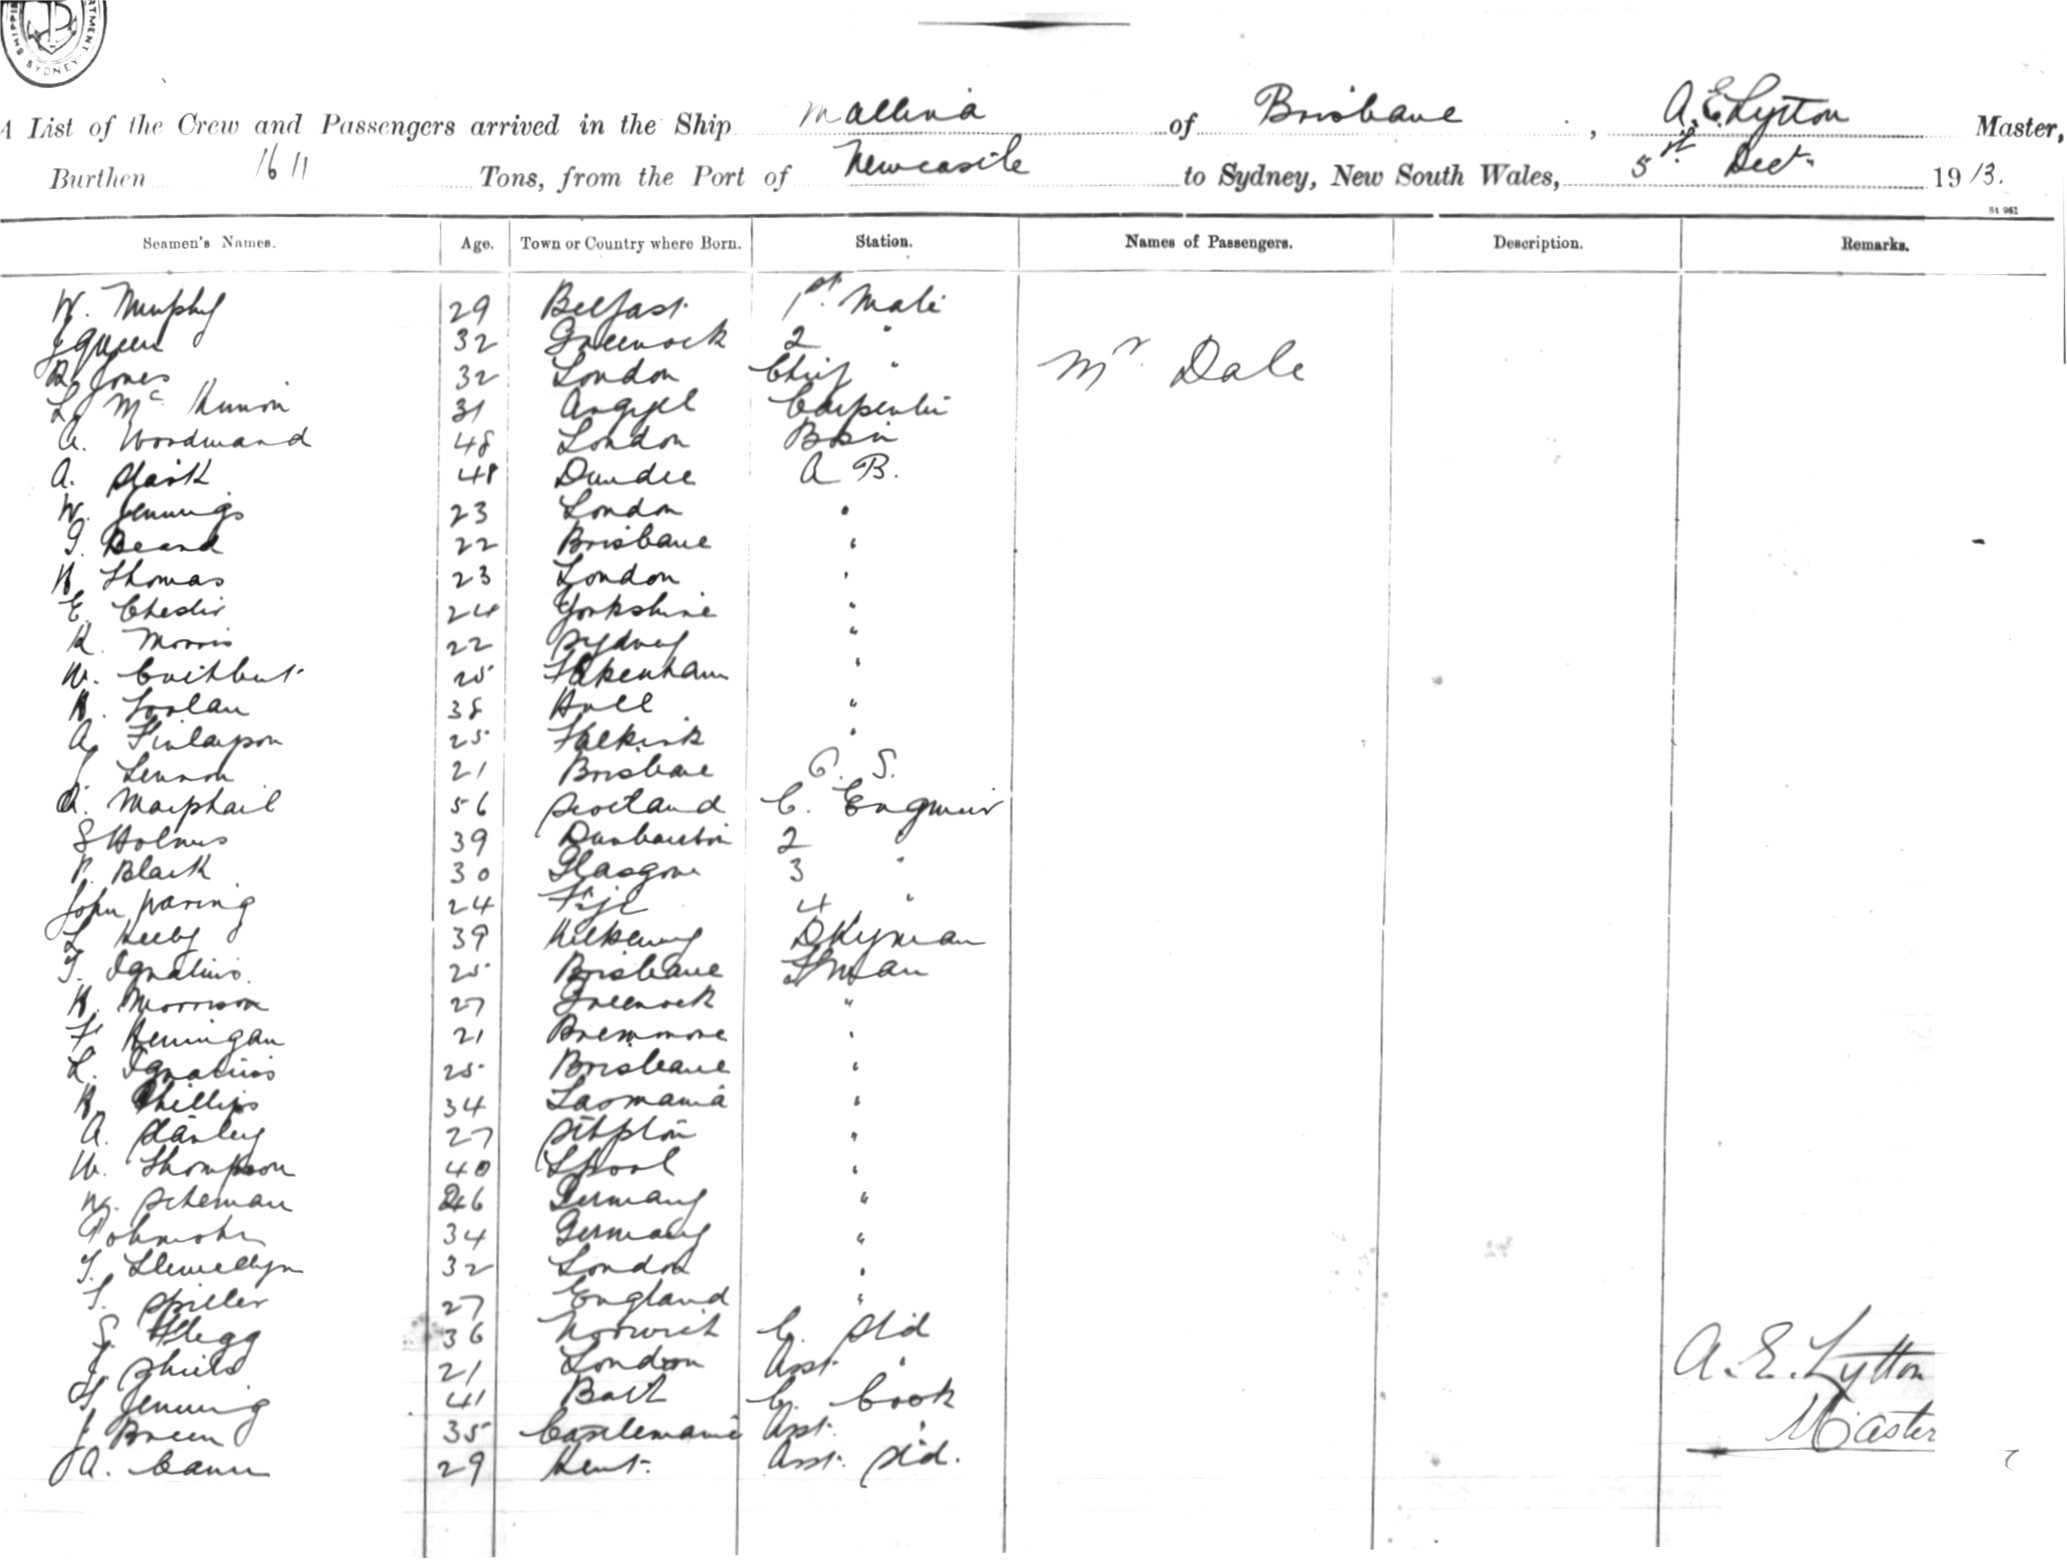 SHIPPING DEPARTMENT SYDNEY
A List of the Crew and Passengers arrived in the Ship Mallina of Brisbane, A. E. Lytton Master,
Burthen 1611 Tons, from the Port of Newcastle to Sydney, New South Wales, 5th Dect. 1913.
St 961
Seamen's Names. Age. Town or Country where Born. Station. Names of Passengers. Description. Remarks.
W. Murphy 29 Belfast 1st Mate
J Queen 32 Greenock 2 "
R Jones 32 London Chief "
Mr Dale
L. Mc Kinnon 31 Argyll Carpenter
A. Woodward 48 London Bosn
A. Clark 48 Dundee A B.
W. Jennings 23 London "
G. Beard 22 Brisbane "
H Thomas 23 London "
E. Chester 24 Yorkshire "
R. Morris 22 Sydney "
W. Cuthbert 25 Fakenham "
H. 38 Hull "
A. Finlayson 25 Falkirk "
J Lennon 21 Brisbane O. S.
A. Macphail 56 Scotland C. Engineer
S Holmes 39 Dunbarton 2 "
P. Black 30 Glasgow 3 "
John Waring 24 Fiji 4 "
L 39 Kilkenny DKyman
T. Ignatius 25 Brisbane Fman
H. Morrison 27 Greenock "
F. 21 "
L. Ignatius 25 Brisbane "
H. Phillips 34 Tasmania "
A. Stanley 27 Sthpton "
W. Thompson 40 Lpool "
W. 46 Germany "
34 Germany "
T. Llewellyn 32 London "
T. Spiller 27 England "
S. Flegg 36 Norwich C. Std
J. Shiels 21 London Asst. "
H. Jenning 41 C. Cook
J Breen 35 Castlemaine Asst. "
A. 29 Kent. Asst. Std.
A. E. Lytton
Master